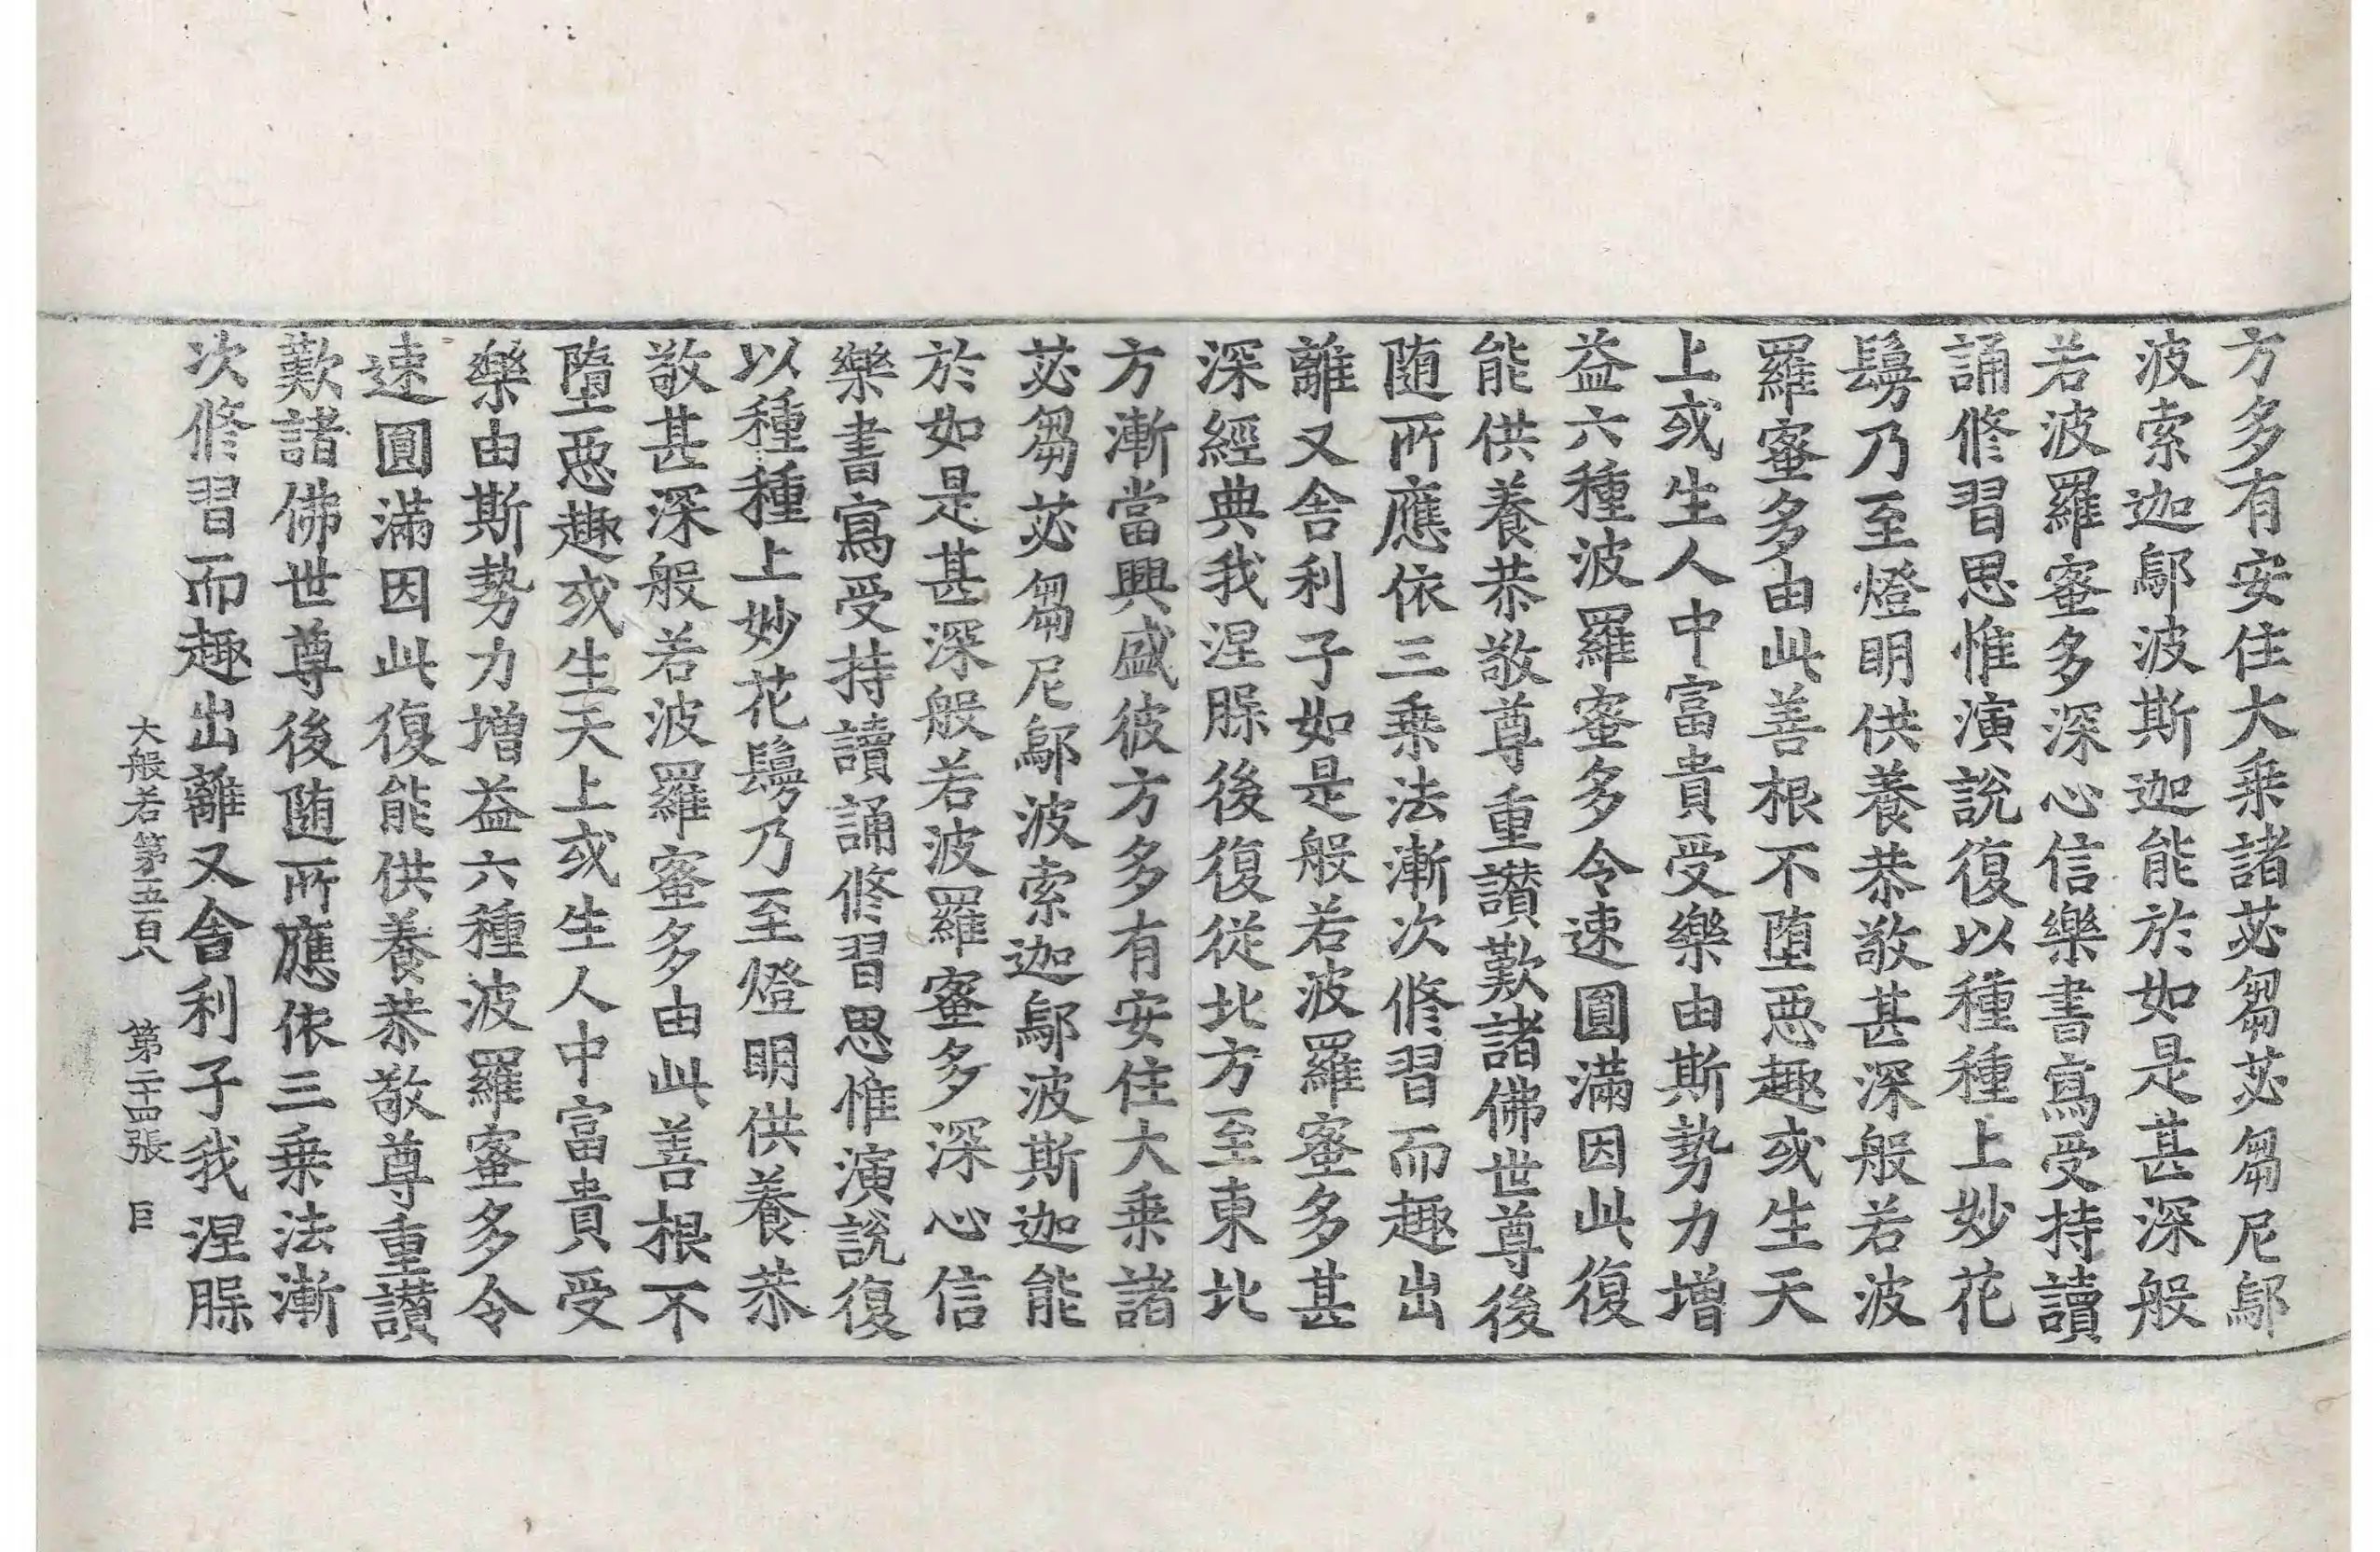 方多有安住大乗諸苾芻苾芻尼鄔
波索迦鄔波斯迦能於如是甚深般
若波羅蜜多深心信樂書寫受持讀
誦修習思惟演說復以種種上妙花
鬘乃至燈明供養恭敬甚深般若波
羅蜜多由此善根不堕惡趣或生天
上或生人中富貴受樂由斯勢力增
益六種波羅蜜多令速圓滿因此復
能供養恭敬尊重讃歎諸佛世尊後
随所應依三乗法漸次修習而趣出
離又舍利子如是般若波羅蜜多甚
深經典我涅槃後復從北方至東北
方漸當興盛彼方多有安住大乗諸
苾芻苾芻尼鄔波索迦鄔波斯迦能
於如是甚深般若波羅蜜多深心信
樂書寫受持讀誦修習思惟演說復
以種種上妙花鬘乃至燈明供養恭
敬甚深般若波羅蜜多由此善根不
墮惡趣或生天上或生人中富貴受
樂由斯勢力增益六種波羅蜜多令
速圓滿因此復能供養恭敬尊重讃
歎諸佛世尊後随所應依三乗法漸
次修習而趣出離又舍利子我涅槃
大般若第五百八 第二十四張 巨